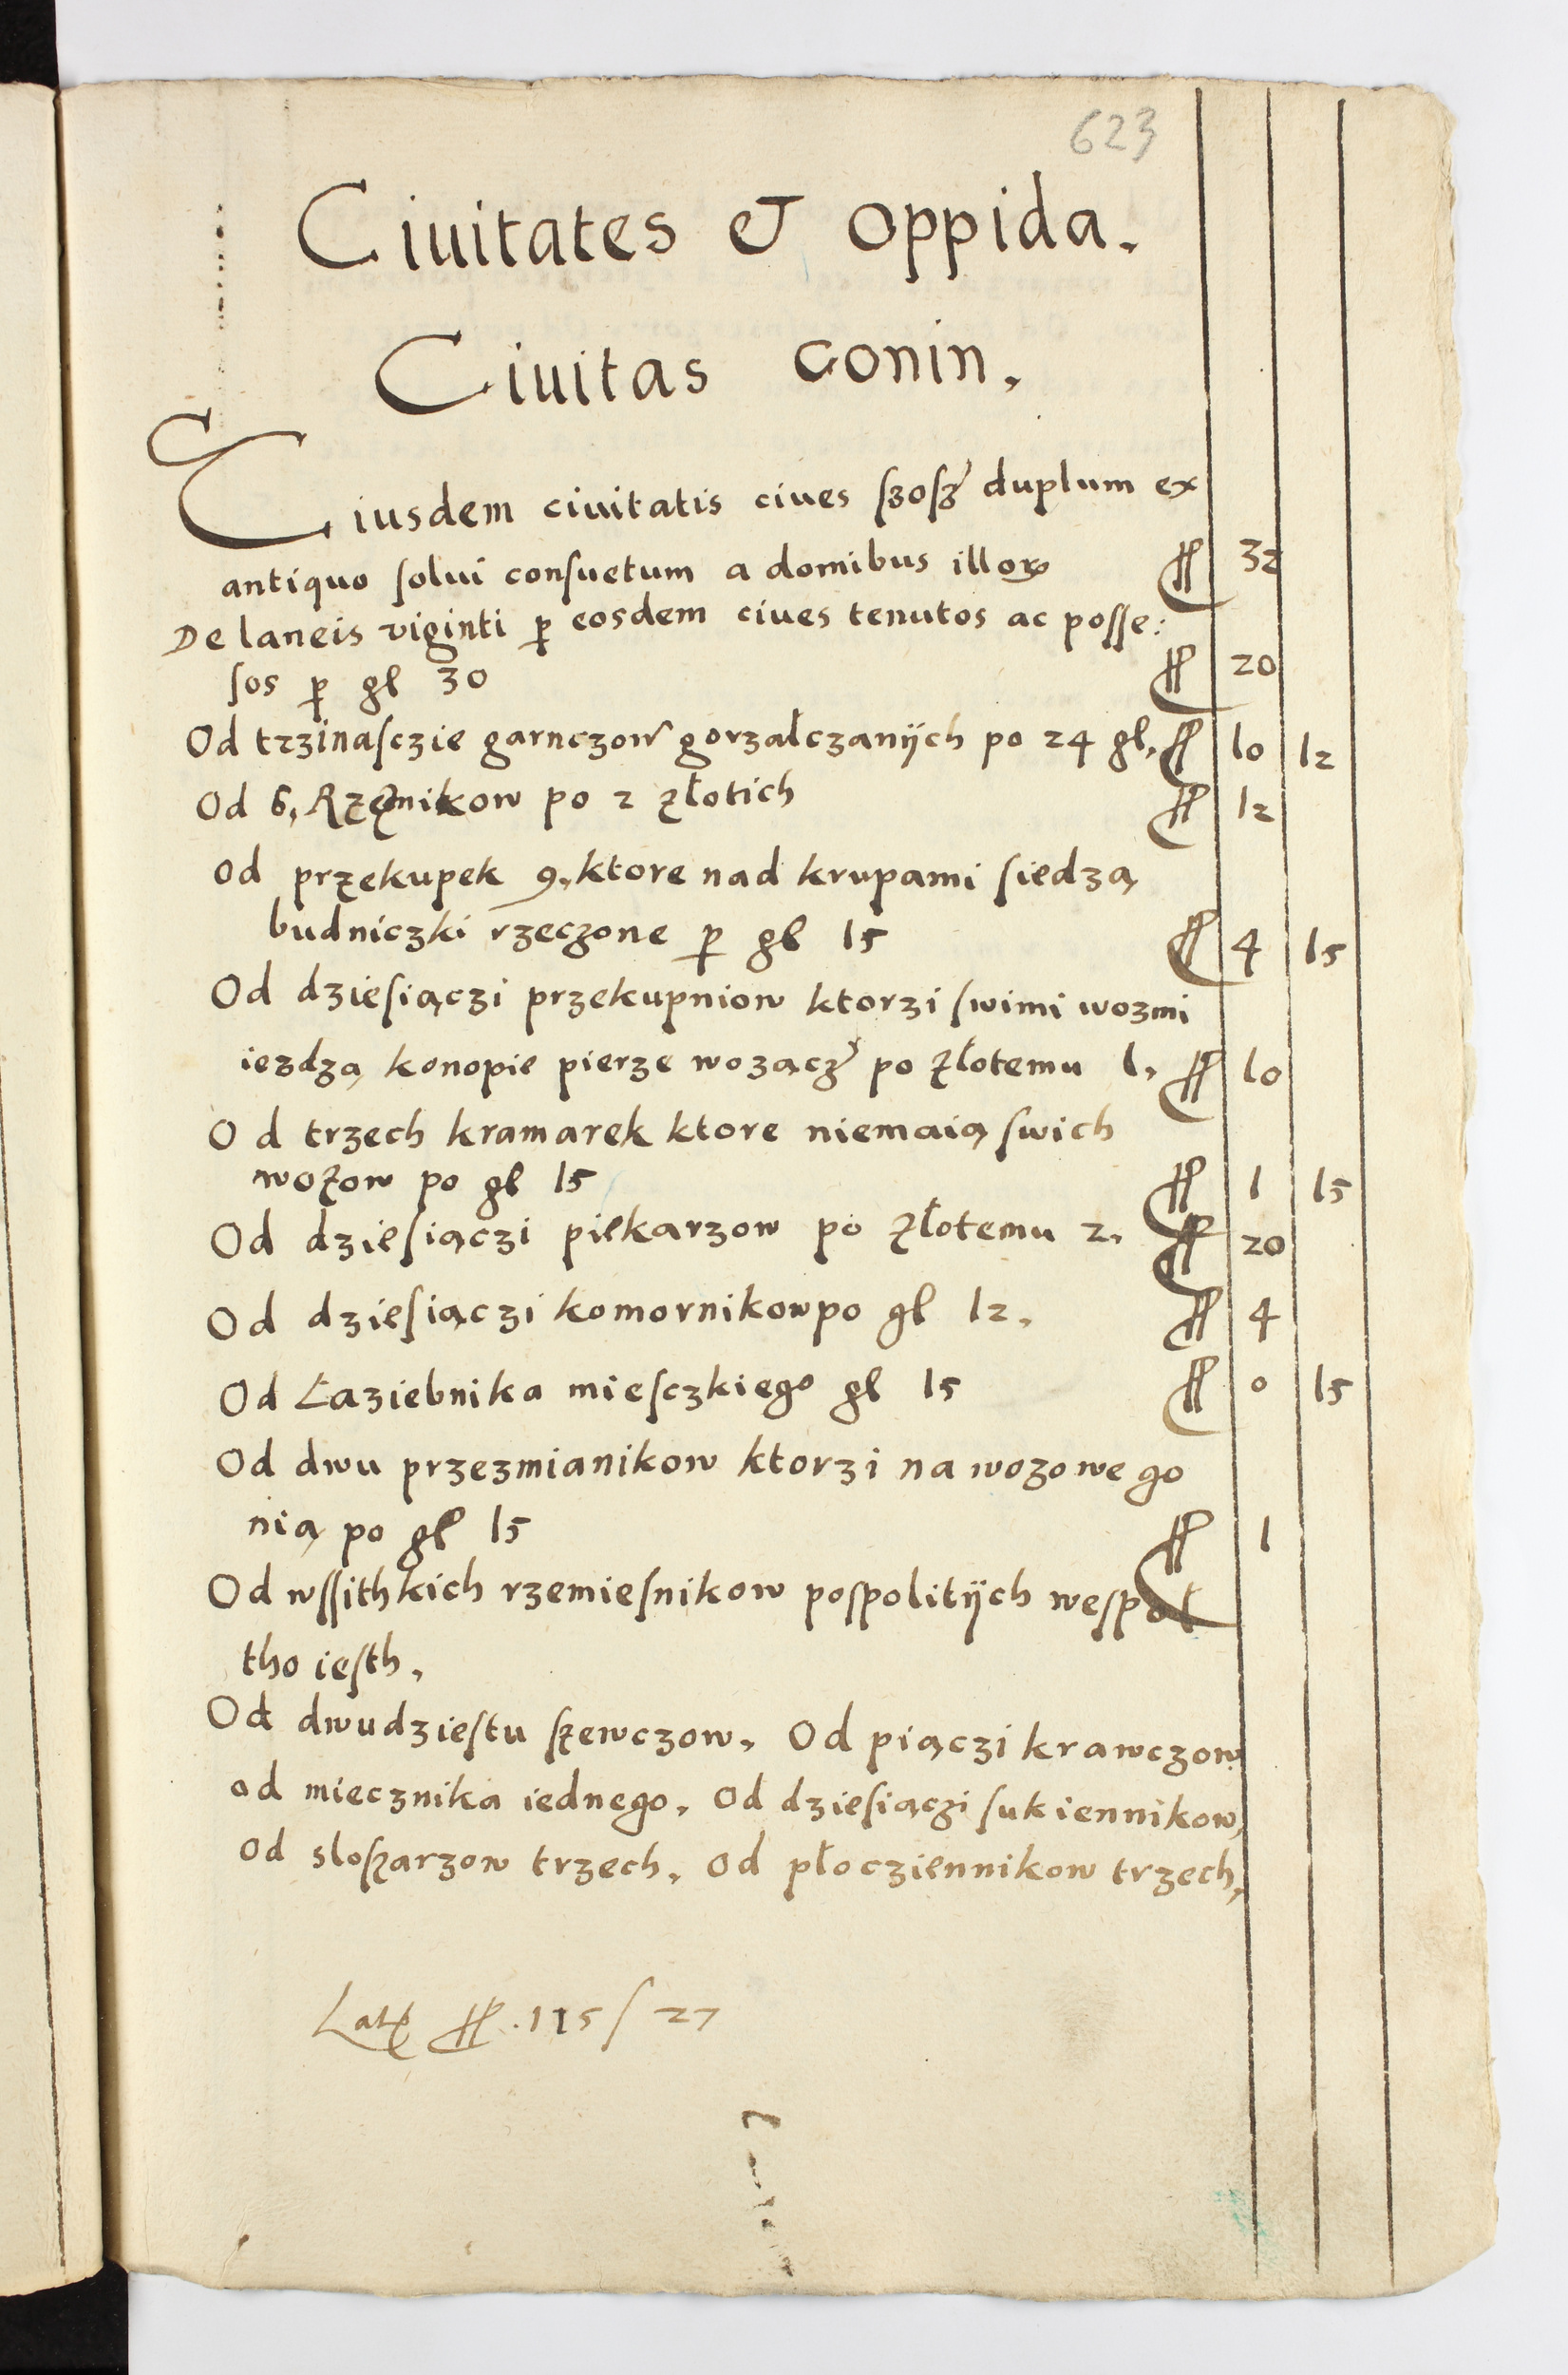 623
Ciuitates et oppida.
Ciuitas Conin.
Eiusdem ciuitatis ciues szosz duplum ex
antiquo solui consuetum a domibus illor fl 32
De laneis viginti p eosdem ciues tenutos ac posse:
sos p gl 30 fl 20
Od trzinasczie garnczow gorzalczanÿch po 24 gl, fl 10 12
Od 6, Rzeznikow po 2 złotich fl 12
Od przekupek 9, ktore nad krupami siedzą
budniczki rzeczone p gl 15 fl 4 15
Od dziesiączi przekupniow ktorzi swimi wozmi
iezdzą konopie pierze wozącz po złotemu 1, fl 10
Od trzech kramarek ktore niemaią swich
wozow po gl 15 fl 1 15
Od dziesiączi piekarzow po złotemu 2, fl 20
Od dziesiączi komornikow po gl 12, fl 4
Od Łaziebnika miesczkiego gl 15 fl 0 15
Od dwu przezmianikow ktorzi na wozowe go
nią po gl 15 fl 1
Od wssithkich rzemiesnikow pospolitÿch wespoł
tho iesth,
Od dwudziestu szewczow, Od piączi krawczow
od miecznika iednego, Od dziesiączi sukiennikow,
Od sloszarzow trzech, Od płocziennikow trzech,
Lat fl. 115/27